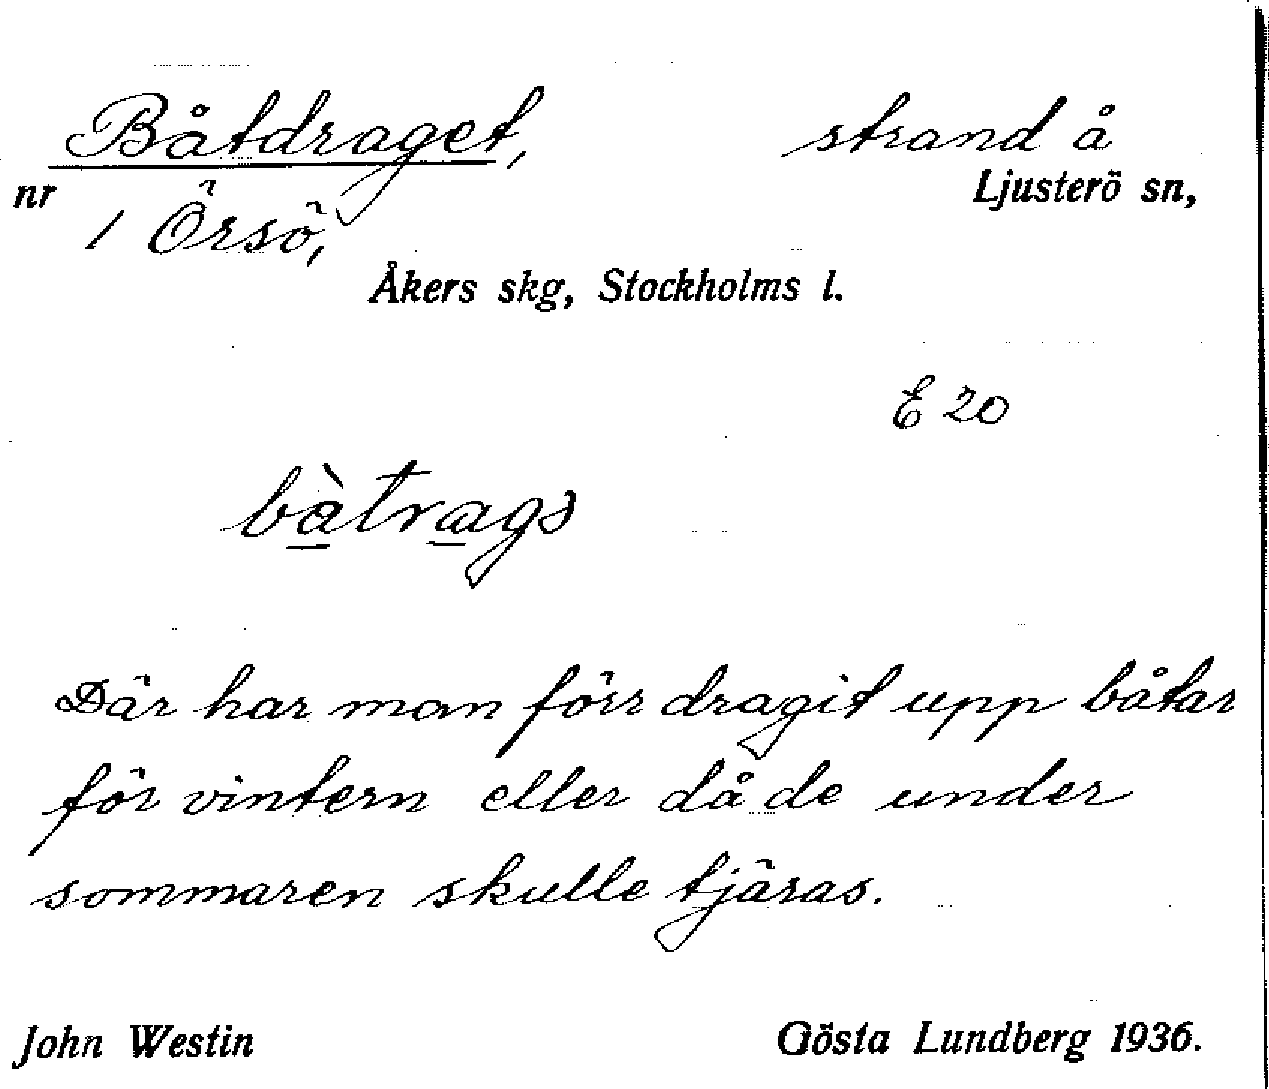 Båtdraget, strand å
nr Ljusterö sn,
1 Örsö,
Åkers skg, Stockholms l.
E 20
bàtrags
Där har man förr dragit upp båtar
för vintern eller då de under
sommaren skulle tjäras.
John Westin Gösta Lundberg 1936.